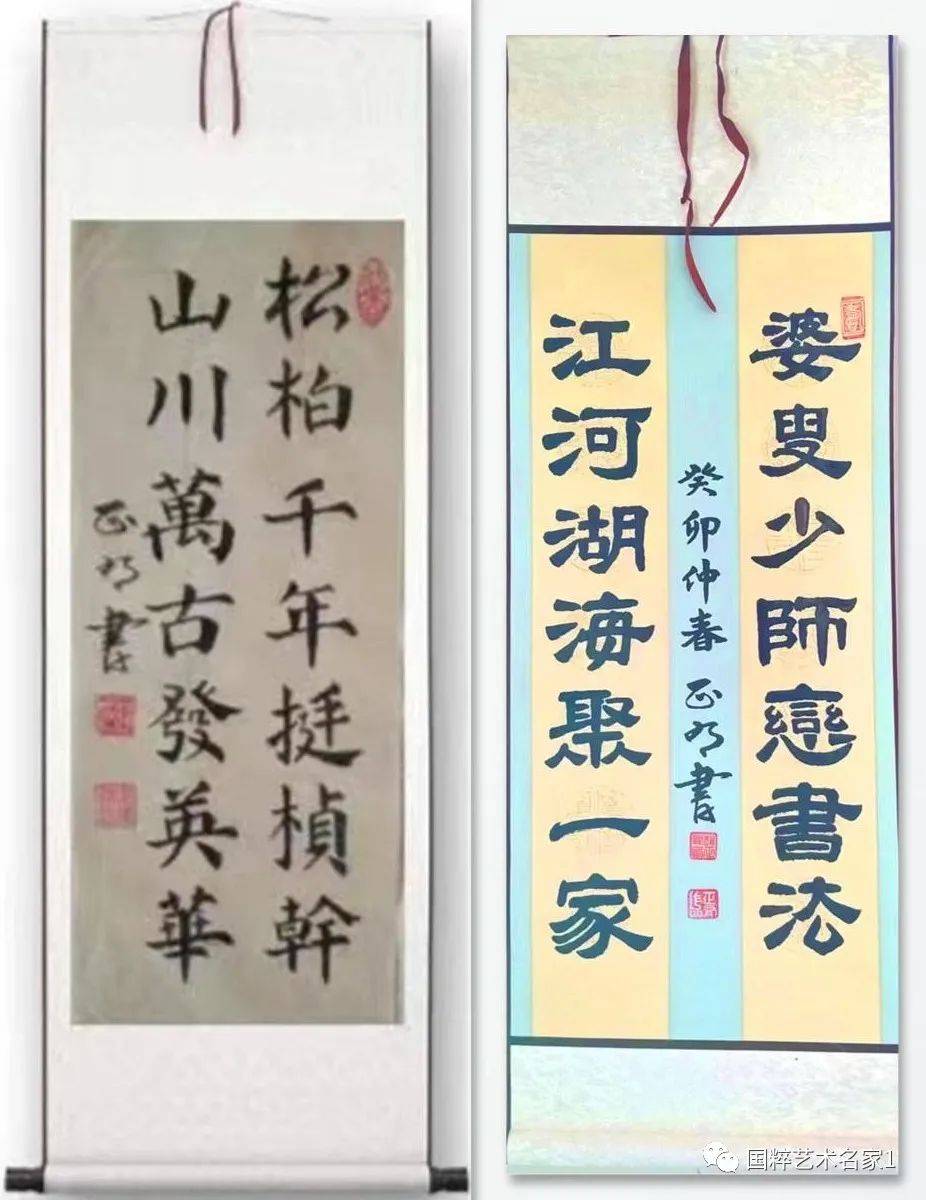 松柏千年挺楨幹
山川萬古發英華
正明書
婆叟少師戀書法
江河湖海聚一家
癸卯仲春 正明書
国粹艺术名家1